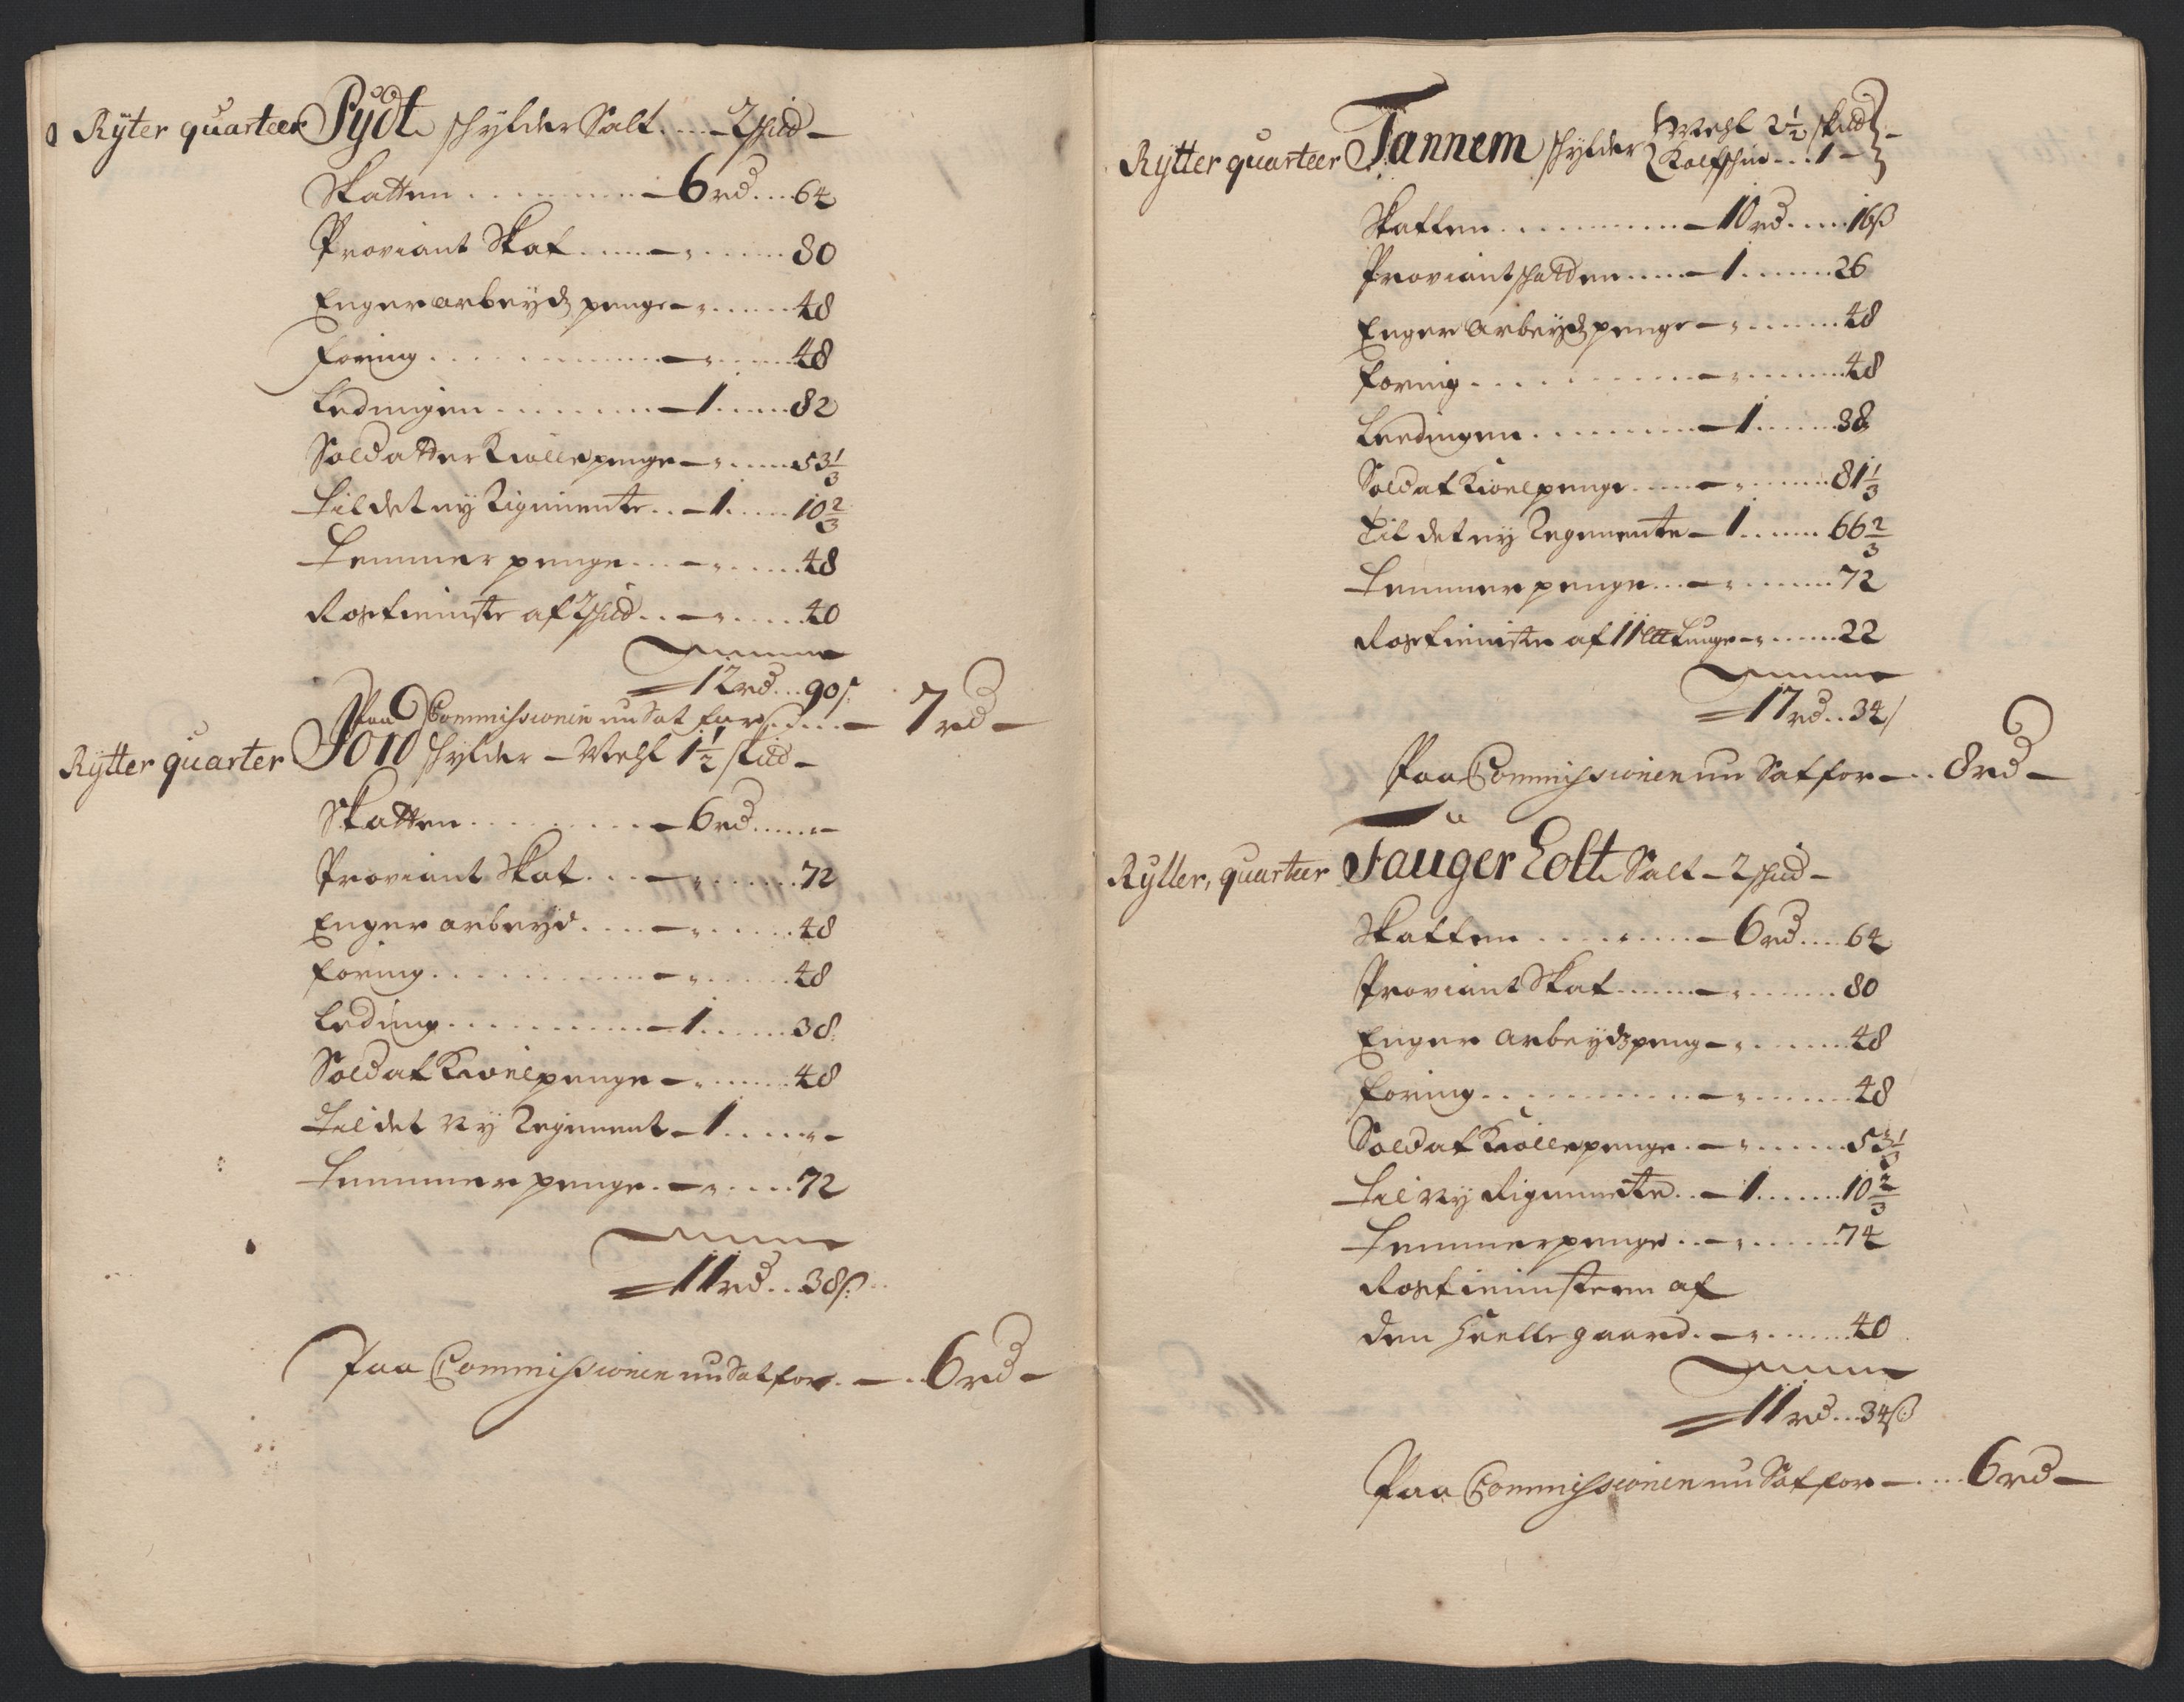 Rÿter quarteer Pÿdt schÿlder Salt .... 2 schÿd –
Skatten ........ – 6 rd .... 64
Proviant Skat ..... – „ ..... 80
Enger arbeÿds penge – „ ...... 48
Foring ............ – „ ..... 48
Ledingen ........ – 1 ..... 82
Soldatter Kiolle penge – „ ..... 53 1/3
Til det nÿ Rigimente .. – 1 ..... 10 2/3
Temmer penge ... – „ ...... 48
Rostieniste af 2 schÿd .. – „ ..... 40
Summa
12 rd ... 90 s.
Paa Commissionen nu Sat for .... – 7 rd –
Rÿtter quarter Jord schÿlder – Mehl 1 1/2 skud –
Skatten ......... – 6 rd ...... –
Proviant Skat .... – „ ...... 72
Enger arbeÿd .... – „ ...... 48
Foring ........... – „ ...... 48
Leding .......... – 1 ...... 38
Soldat Kiolepenge – „ ...... 48
Til det Nÿ Regiment – 1 ..... „ –
Temmer penge . – „ ..... 72
Summa
11 rd ... 38 s.
Paa Commissionen nu Sat for . – .. 6 rd –
Rÿtter quarteer Tannem schÿlder { Mehl 2 1/2 skud
Kalfschin ... 1 – } –
Skatten ............ – 10 rd ..... 16 ß
Proviantschatden ..... – 1 ....... 26
Enger Arbeÿds penge – „ ........ 48
Foring ............ – „ ........ 48
Leedingen .......... – 1 ...... 38
Soldat Kioelpenge ..... – „ ....... 81 1/3
Til det nÿ Regemente – 1 ...... 66 2/3
Temmer penge ... – „ ........ 72
Rostieniste af 11 Lise – „ ...... 22
Summa
17 rd .. 34 s
Paa Commissionen nu Sat for – .. 8 rd –
Rÿtter, quarteer Fauger Eolt Salt – 2 schÿd –
Skatten .......... – 6 rd .... 64
Proviant Skat ....... – „ ....... 80
Enger Arbeÿds peng – „ ....... 48
Foring ............. – „ ....... 48
Soldat Kiolle penge . – „ ...... 53 1/3
Til Nÿ Rigimente .. – 1 ....... 10 2/3
Temmer penge .. – „ ....... 74
Rostienisten af
den heelle gaard . – „ ...... 40
Summa
11 rd ... 34 ß
Paa Commissionen nu Sat for – .... 6 rd –